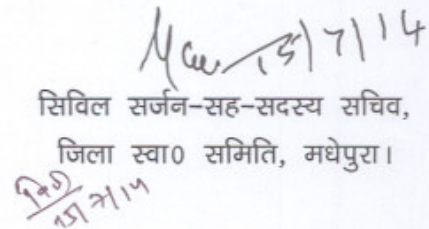 15/7/14
सिविल सर्जन-सह-सदस्य सचिव,
जिला स्वा0 समिति, मधेपुरा।
15/7/14